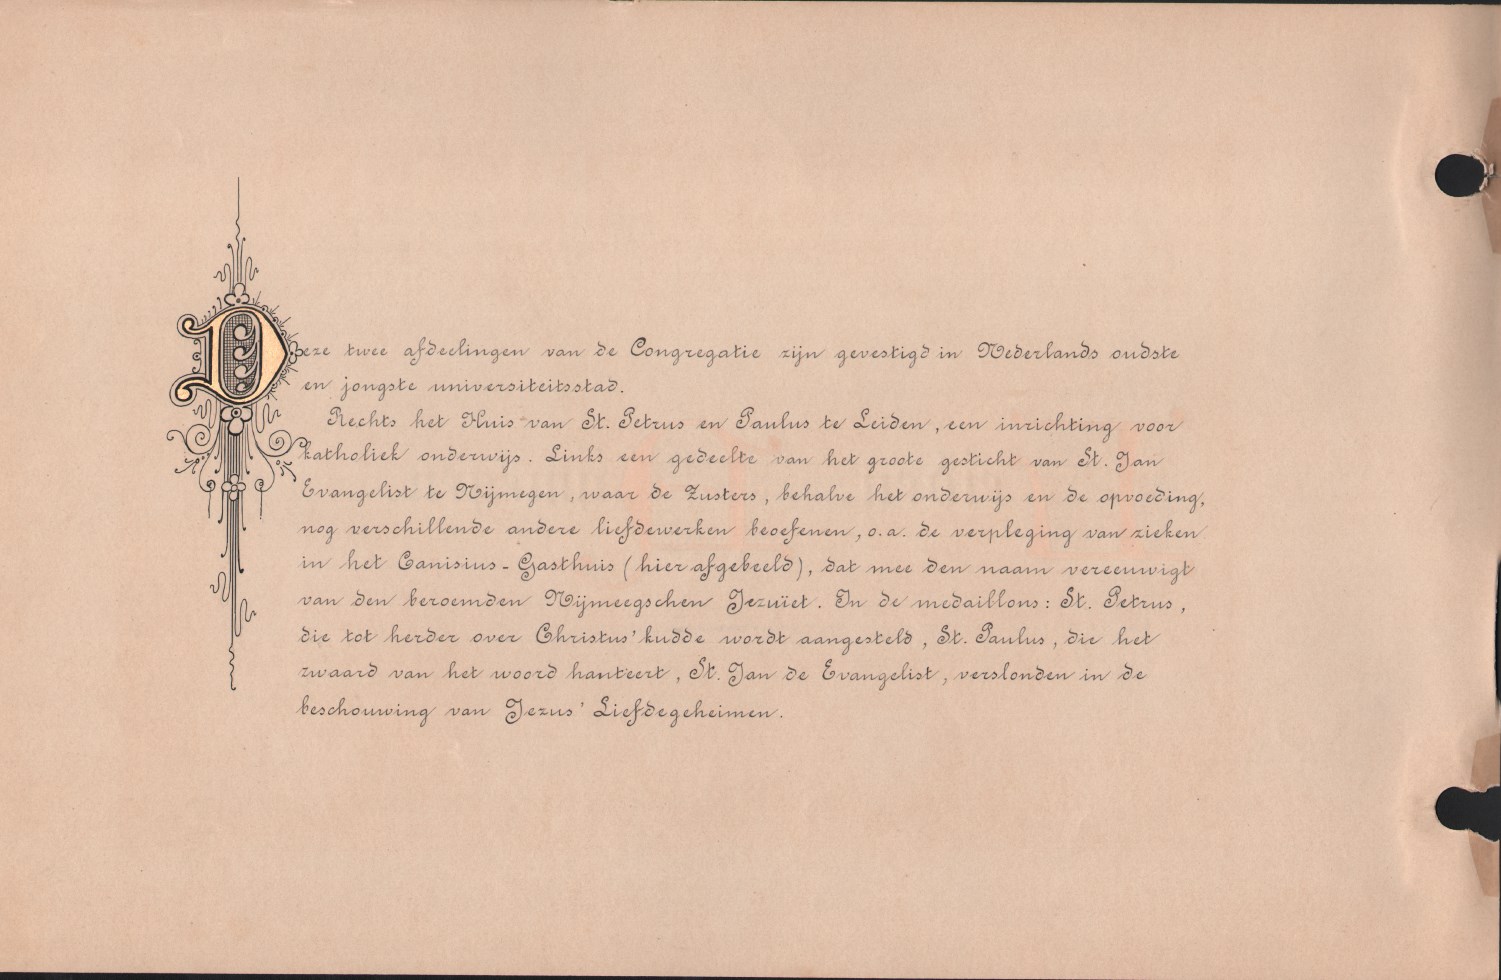 Deze twee afdeelingen van de Congregatie zijn gevestigd in Nederlands oudste
en jongste universiteitsstad.
Rechts het Huis van St. Petrus en Paulus te Leiden, een inrichting voor
katholiek onderwijs. Links een gedeelte van het groote gesticht van St. Jan
Evangelist te Nijmegen, waar de Zusters, behalve het onderwijs en de opvoeding,
nog verschillende andere liefdewerken beoefenen, o.a. de verpleging van zieken
in het Canisius-Gasthuis (hier afgebeeld), dat mee den naam vereeuwigt
van den beroemden Nijmeegschen Jezuïet. In de medaillons: St. Petrus,
die tot herder over Christus' kudde wordt aangesteld, St. Paulus, die het
zwaard van het woord hanteert, St. Jan de Evangelist, verslonden in de
beschouwing van Jezus' Liefdegeheimen.